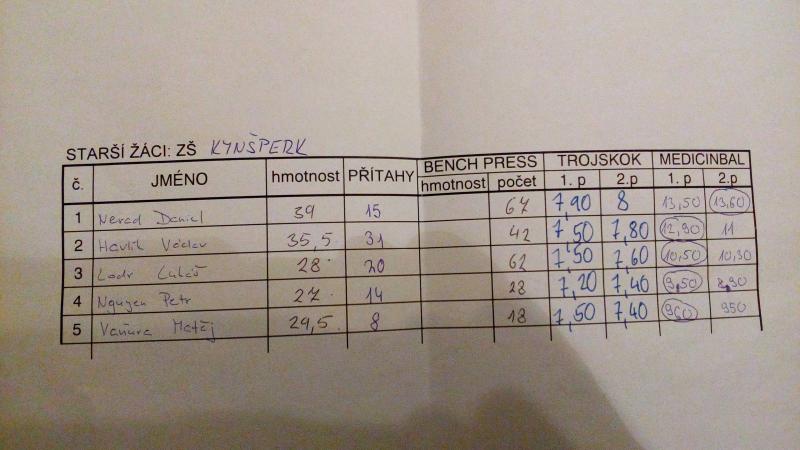 STARŠÍ ŽÁCI: ZŠ KYNŠPERK
č. JMÉNO hmotnost PŘÍTAHY BENCH PRESS TROJSKOK MEDICINBAL
hmotnost počet 1. p 2.p 1. p 2.p
1 Nerad Daniel 39 15 67 7,90 8 13,50 13,60
2 Havlík Václav 35,5 31 42 7,50 7,80 12,90 11
3 Lodr Lukáš 28 20 62 7,50 7,60 10,50 10,30
4 Nguyen Petr 27 14 28 7,20 7,40 9,50 8,90
5 Vaňura Matěj 29,5 8 18 7,50 7,40 960 950